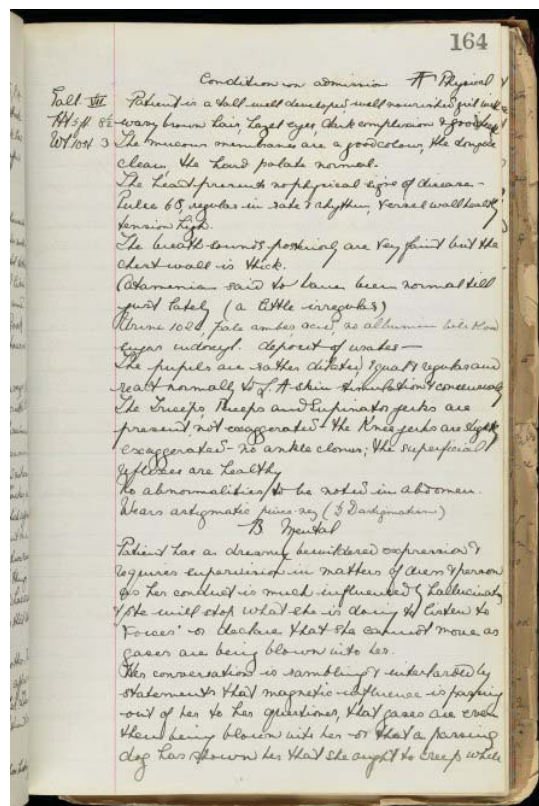 164
Condition on admission A Physical &
Tall
Ht 5ft 8½
Wt 10st 3
Patient is a tall well developed, well nourished girl with
wavy brown hair, hazel eyes, dark complexion &
The mucous membranes are a good colour, the tongue
clean, the hard palate normal.
The heart presents no physical signs of disease -
Pulse 68, regular in rate & rhythm, vessel wall healthy
tension high.
The breath sounds posteriorly are very faint but the
chest wall is thick.
Catamenia said to have been normal till
just lately (a little irregular)
Urine 1020, pale amber, acid, no albumin bile blood
sugar indoxyl. deposit of urates -
The pupils are rather dilated, equal & regular and
react normally to L. A skin stimulation & consensually
The Triceps, Biceps and Supinator jerks are
present, not exaggerated - the Knee jerks are slightly
exaggerated - no ankle clonus; the superficial
reflexes are healthy
No abnormalities to be noted in abdomen.
Wears astigmatic pince-nez
B Mental
Patient has a dreamy bewildered expression &
requires supervision in matters of dress & person
as her conduct is much influenced by hallucinations
& she will stop what she is doing to listen to
'voices' or declare that she cannot move as
gases are being blown into her.
Her conversation is rambling & interlarded by
statements that magnetic influence is passing
out of her to her questioner, that gases are even
then being blown into her or that a passing
dog has shown her that she ought to creep while